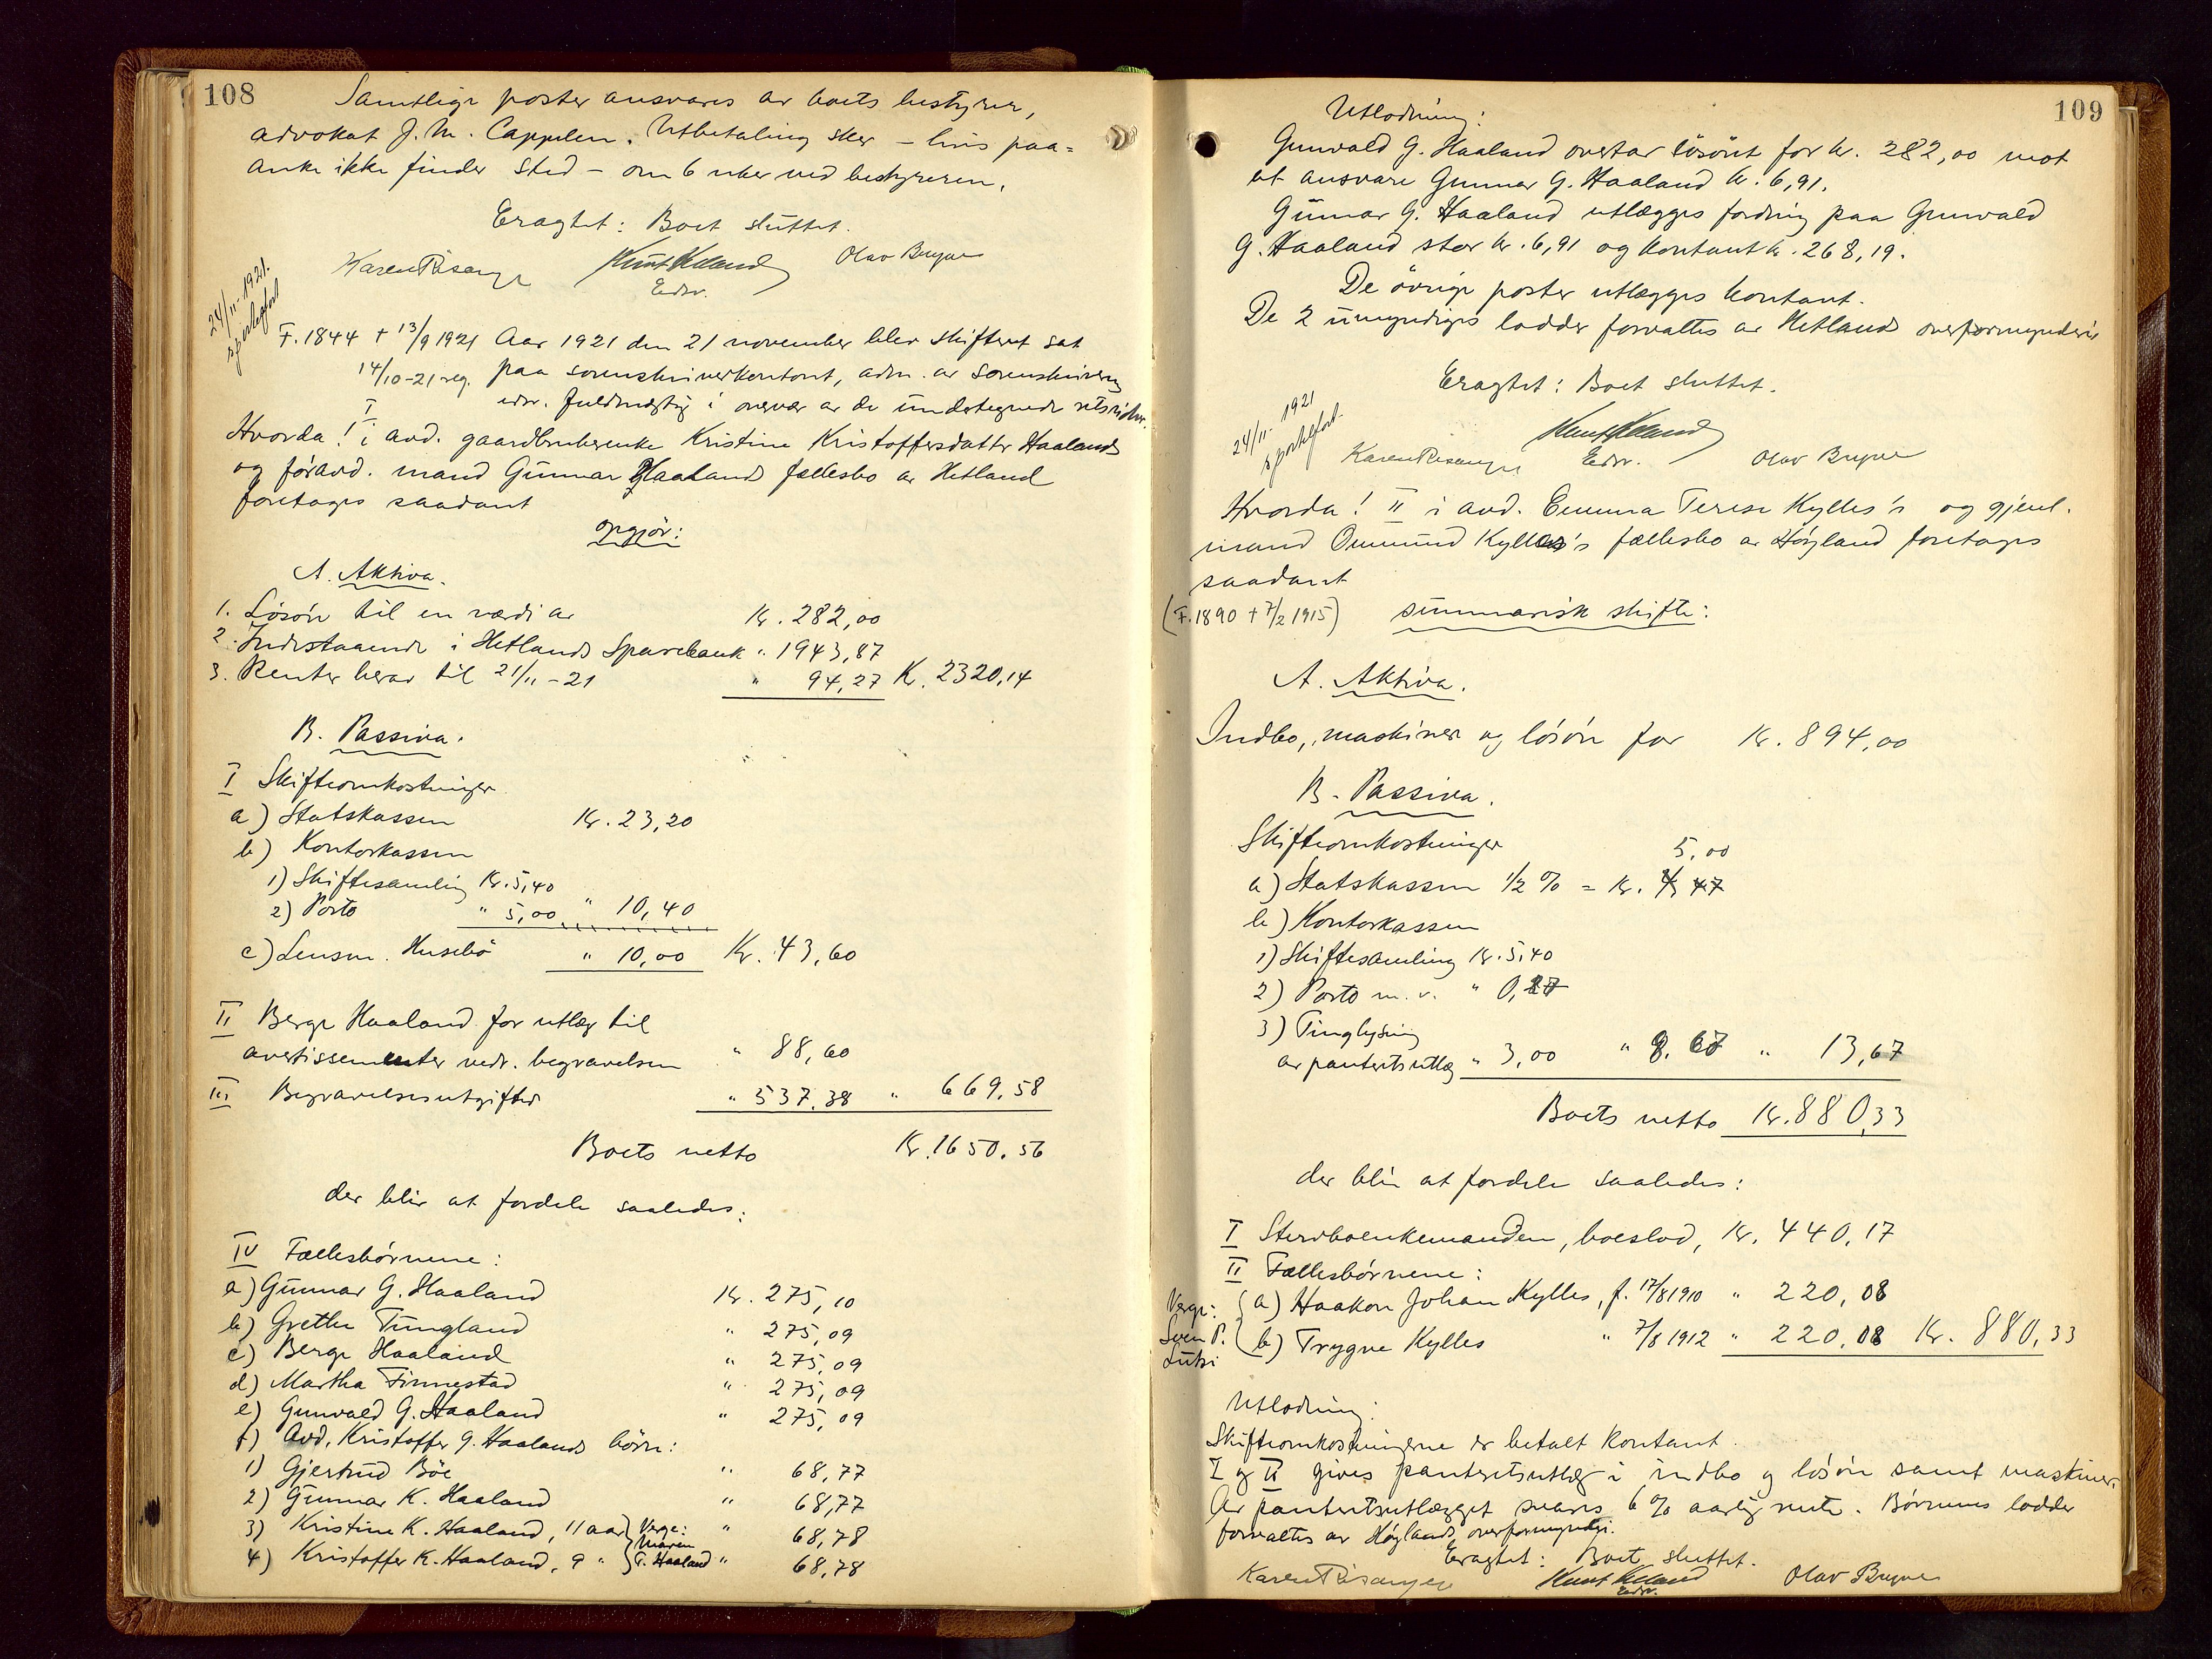 108
Samtlige poster ansvares av boets bestyrer,
advokat J. M. Cappelen. Utbetaling sker – hvis paa=
anke ikke finder sted – om 6 uker ved bestyreren.
Eragtet: Boet sluttet.
Karen Risanger Knut Kelland Olav Bryne
Edsv.
24/11-1921.
F. 1844 + 13/9 1921 Aar 1921 den 21 november blev skifteret sat
14/10-21 reg. paa sorenskriverkontoret, adm. av sorenskriverens
edsv. fuldmægtig i overvær av de undertegnede retsvidner.
Hvorda! I i avd. gaardbrukerenke Kristine Kristoffersdatter Haalands
og foravd. mand Gunnar Haalands fællesbo av Hetland
foretages saadant
opgjør:
A. Aktiva.
1. Løsøre til en værdi av Kr. 282,00
2. Indestaaende i Hetlands Sparebank " 1943,87
3. Renter herav til 21/11-21 " 94,27 Kr. 2320,14
B. Passiva.
I Skifteomkostninger
a) Statskassen Kr. 23,20
b) Kontorkassen
1) Skiftesamling Kr. 5,40
2) Porto " 5,00 " 10,40
c) Lensm. Husebø " 10,00 Kr. 43,60
II Berge Haaland for utlæg til
avertissementer vedr. begravelsen " 88,60
III Begravelsesutgifter " 537,38 " 669,58
Boets netto Kr. 1650,56
der blir at fordele saaledes:
IV Fællesbørnene:
a) Gunnar G. Haaland Kr. 275,10
b) Grethe Tungland " 275,09
c) Berge Haaland " 275,09
d) Martha Finnestad " 275,09
e) Gunvald G. Haaland " 275,09
f) Avd. Kristoffer G. Haalands børn:
1) Gjertrud Bøe " 68,77
2) Gunnar K. Haaland " 68,77
3) Kristine K. Haaland, 11 aar } Verge: " 68,78
Maren
4) Kristoffer K. Haaland, 9 " } T. Haaland " 68,78
109
Utlodning:
Gunvald G. Haaland overtar løsøret for kr. 282,00 mot
at ansvare Gunnar G. Haaland kr. 6,91.
Gunnar G. Haaland utlægges fordring paa Gunvald
G. Haaland stor kr. 6,91 og kontant kr. 268,19.
De øvrige poster utlægges kontant.
De 2 umyndiges lodder forvaltes av Hetlands overformynderi
Eragtet: Boet sluttet.
24/11-1921
Karen Risanger Knut Kelland Olav Bryne
Edsv.
Hvorda! II i avd. Emma Terese Kylles's og gjenl.
mand Ommund Kylles's fællesbo av Høyland foretages
saadant
(F. 1890 + 7/2 1915) summarisk skifte:
A. Aktiva.
Indbo, maskiner og løsøre for Kr. 894,00
B. Passiva.
Skifteomkostninger
5,00
a) Statskassen 1/2 % = Kr. 4,47
b) Kontorkassen
1) Skiftesamling Kr. 5,40
2) Porto m. v. " 0,27
3) Tinglysning
av panteretsutlæg " 3,00 " 8,67 " 13,67
Boets netto Kr. 880,33
der blir at fordele saaledes:
I Stervboenkemanden, boeslod, Kr. 440,17
II Fællesbørnene:
Verge: Sven P. Lutsi { a) Haakon Johan Kylles, f. 17/8 1910 " 220,08
b) Trygve Kylles " 7/8 1912 " 220,08 Kr. 880,33
Utlodning:
Skifteomkostningerne er betalt kontant.
I og II gives panteretsutlæg i indbo og løsøre samt maskiner.
Av panteretsutlægget svares 6 % aarlig rente. Børnenes lodder
forvaltes av Høylands overformynderi.
Eragtet: Boet sluttet.
Karen Risanger Knut Kelland Olav Bryne
Edsv.